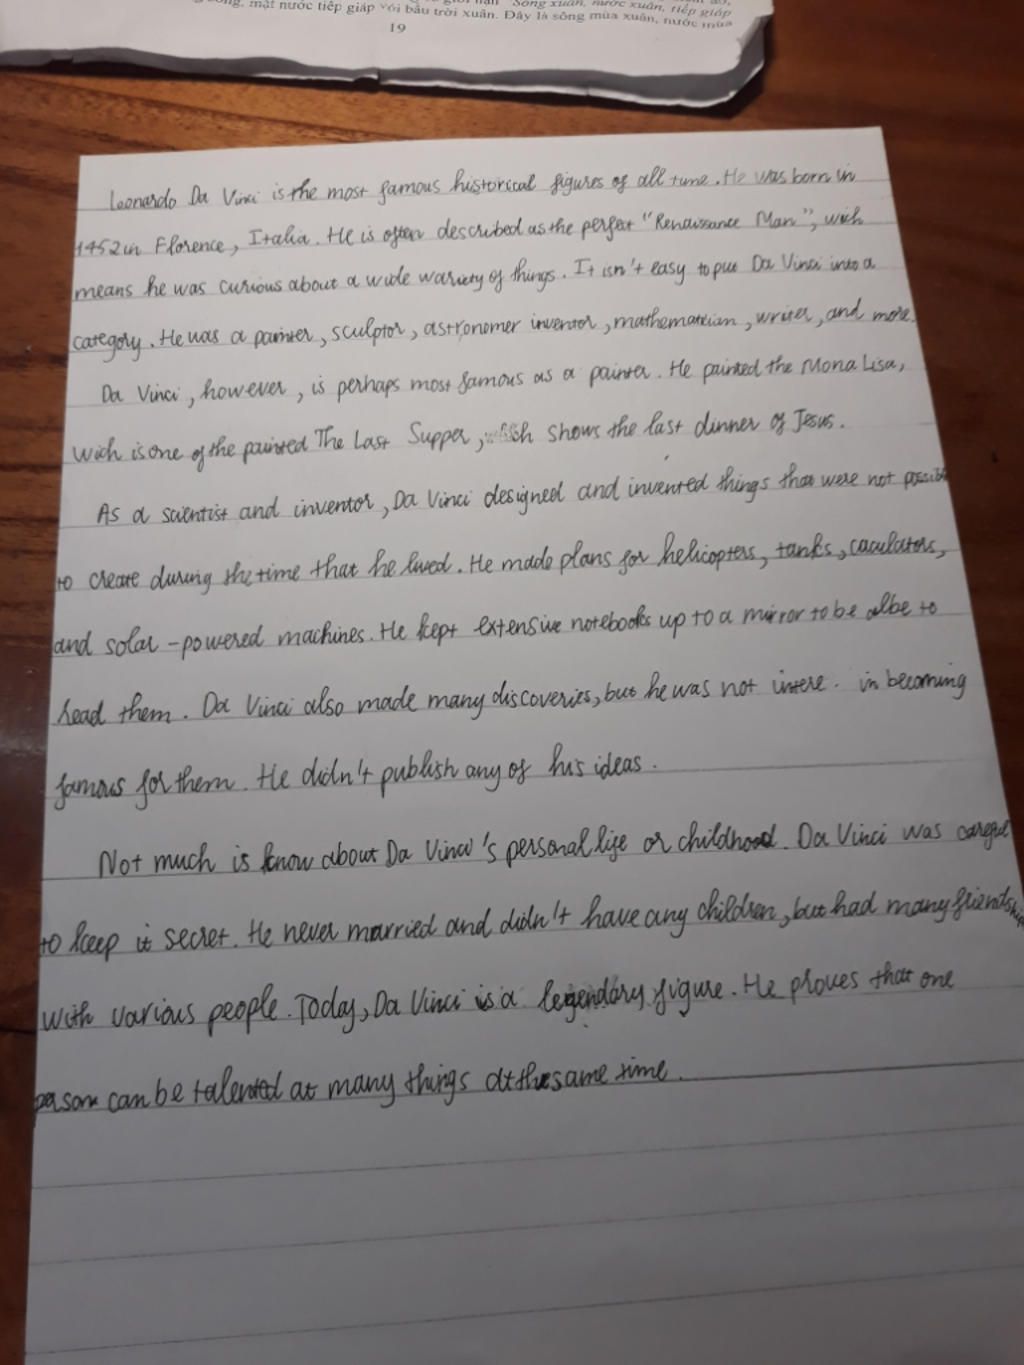 mặt nước tiếp giáp với bầu trời xuân. Đây là sông mùa xuân, nước mùa
19
Leonardo Da Vinci is the most famous historical figures of all time. He was born in
1452 in Florence, Italia. He is often described as the perfect "Renaissance Man", wich
means he was curious about a wide wariety of things. It isn't easy to put Da Vinci into a
category. He was a painter, sculptor, astronomer inventor, mathematician, writer, and more.
Da Vinci, however, is perhaps most famous as a painter. He painted the Mona Lisa,
wich is one of the painted The Last Supper, which shows the last dinner of Jesus.
As a scientist and inventor, Da Vinci designed and invented things that were not possible
to create during the time that he lived. He made plans for helicopters, tanks, caculators,
and solar-powered machines. He kept extensive notebooks up to a mirror to be albe to
read them. Da Vinci also made many discoveries, but he was not intere. in becoming
famous for them. He didn't publish any of his ideas.
Not much is know about Da Vinci's personal life or childhood. Da Vinci was careful
to keep it secret. He never married and didn't have any children, but had many friendship
with various people. Today, Da Vinci is a legendary figure. He proves that one
person can be talented at many things at the same time.